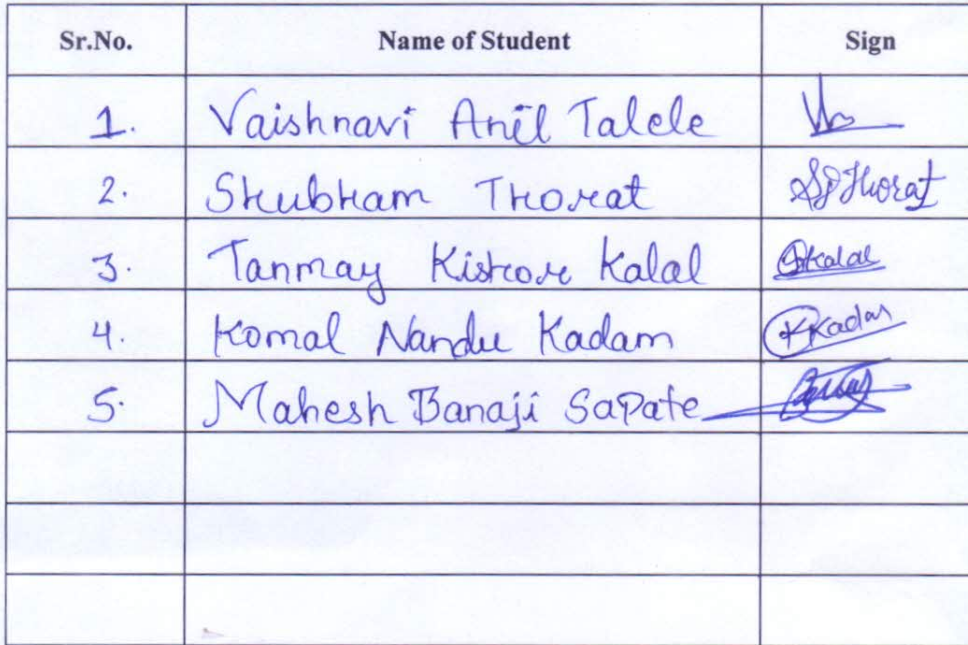 Sr.No. Name of Student Sign
1. Vaishnavi Anil Talele
2. Shubham Thorat SPThorat
3. Tanmay Kishore Kalal Kalal
4. Komal Nandu Kadam KKadam
5. Mahesh Banaji Sapate